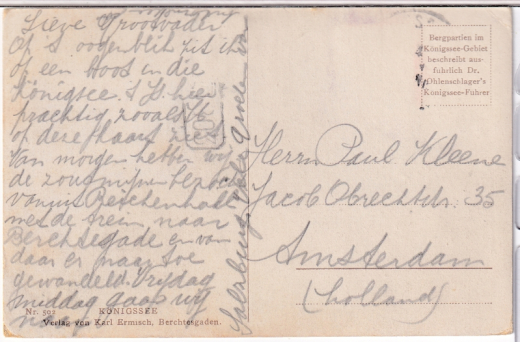 Lieve Grootvader
Op 't oogenblik zit ik
op een boot in die
Königsee. 't Is hier
prachtig, zooals U
op deze kaart ziet
Van morgen hebben wij
de zoutmijnen bezocht
van uit Reichenhall
met de trein naar
Berchtegade en van
daar er naar toe
gewandeld. Vrijdag
middag gaan wij
naar
Salzburg. Vele
Herrn Paul Kleene
Jacob Obrechtstr. 35
Amsterdam
(Holland)
Bergpartien im
Königssee-Gebiet
beschreibt aus-
führlich Dr.
Ohlenschlager's
Königssee-Führer
Nr. 502 KÖNIGSSEE
Verlag von Karl Ermisch, Berchtesgaden.